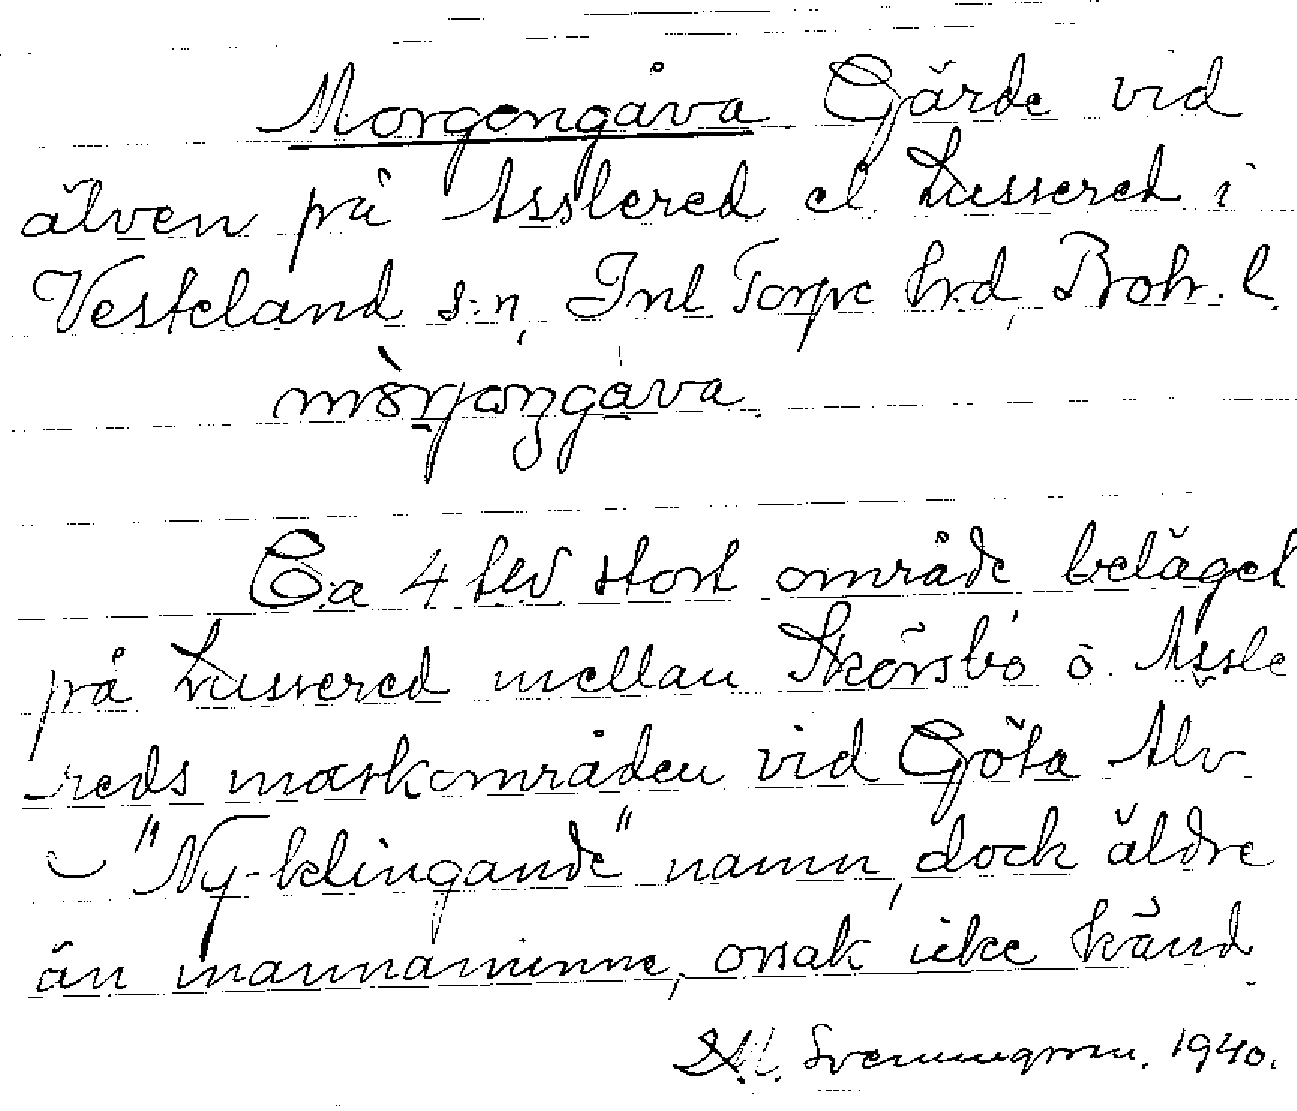 Morgongåva Gärde vid
älven på Asslered el Lussered i
Vesteland s:n, Inl Torpe hrd, Boh. l.
mòrjoŋgåva.
Ca 4 tld stort område beläget
på Lussered mellan Skörsbo o. Assle
-reds markområden vid Göta Älv
- "Ny-klingande" namn, dock äldre
än mannaminne, orsak icke känd.
Svenungsson. 1940.